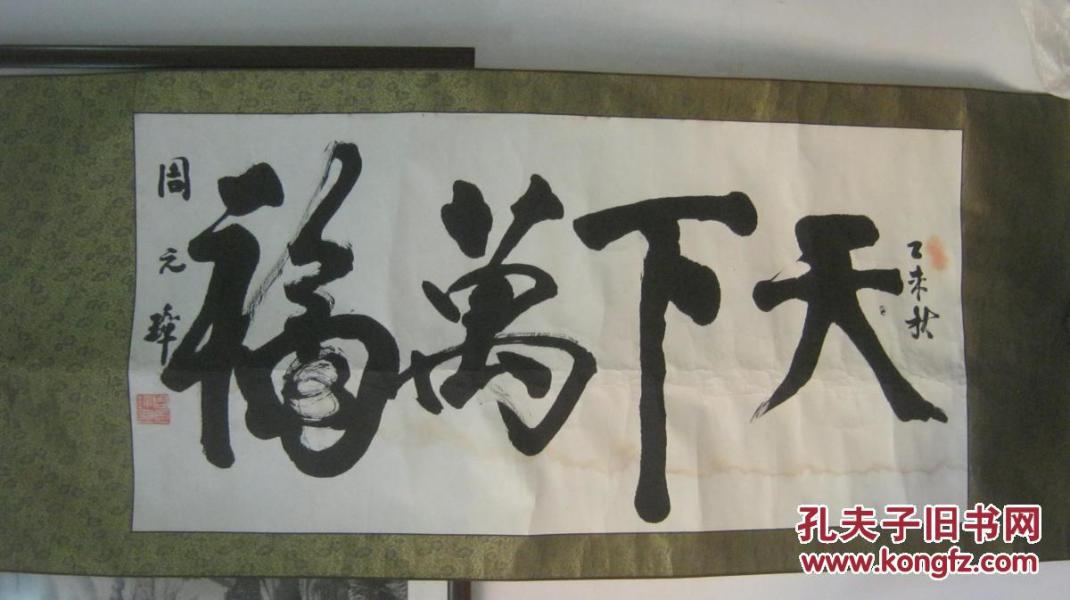 乙未秋
天下萬福
周元瑋
孔夫子旧书网
www.kongfz.com